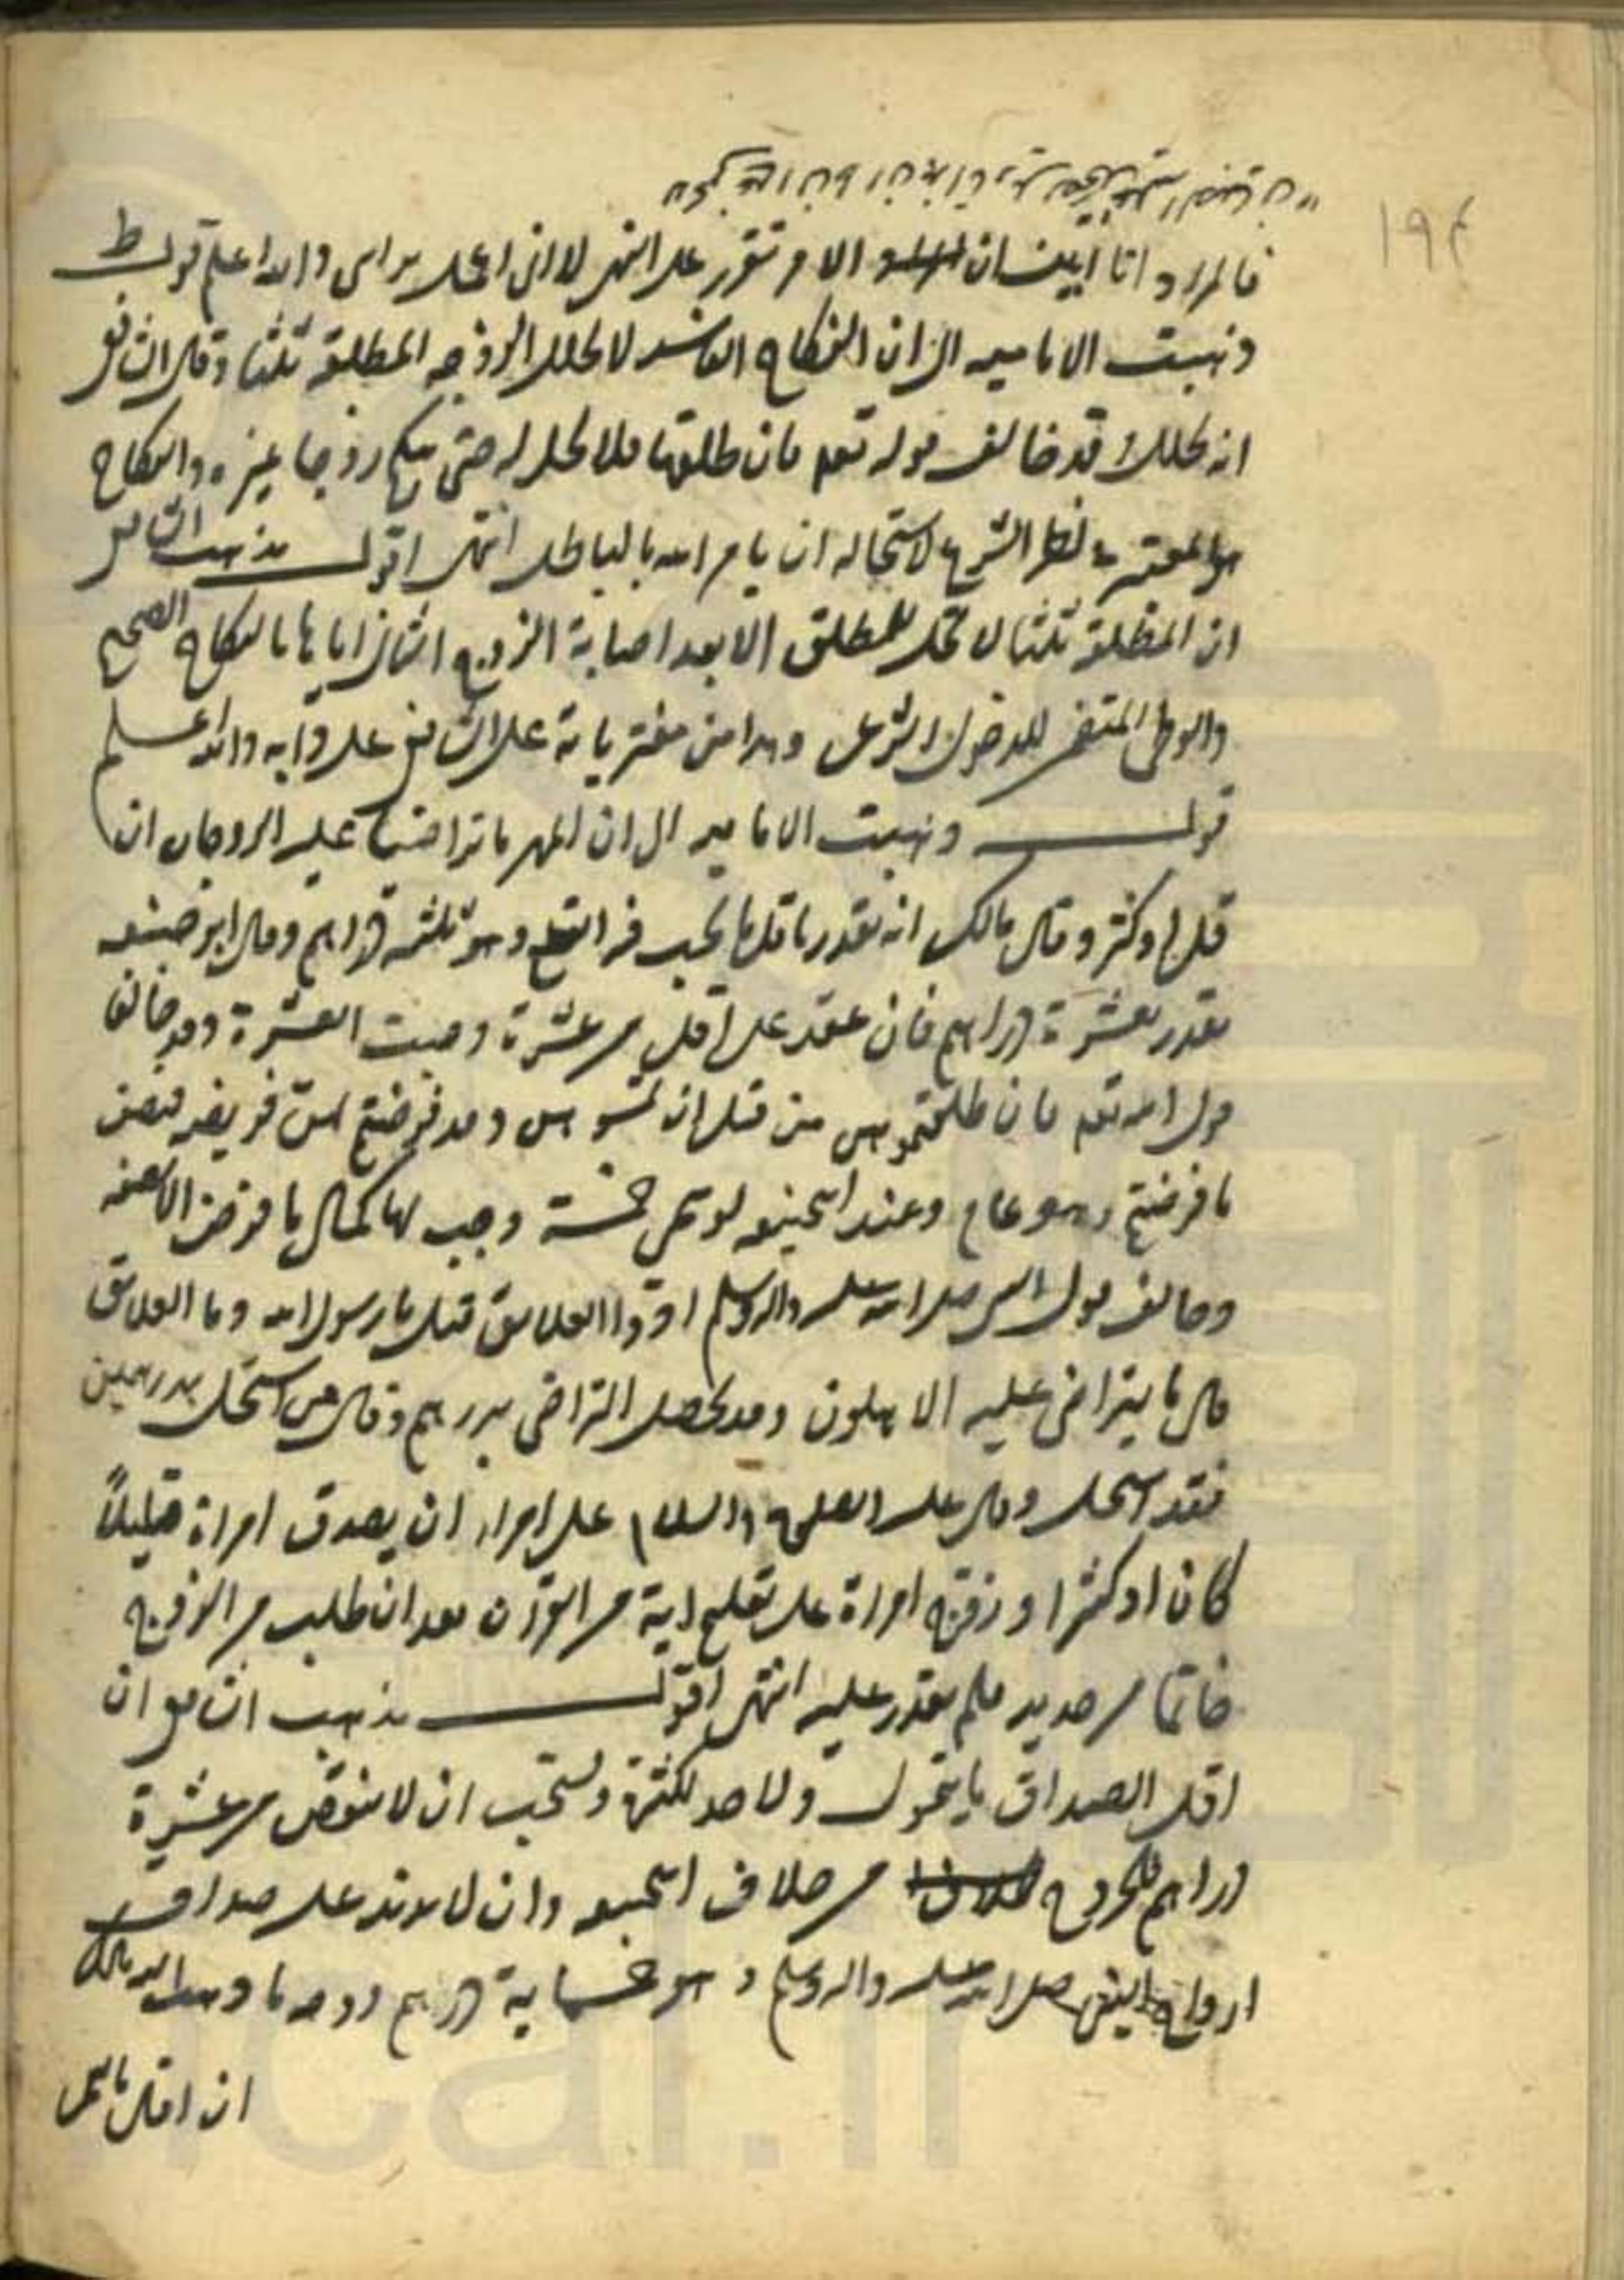 ١٩٤
فالمراد انا ايضا ان الامر تقرر على انتهى لا انى اعمل براى والله اعلم قولـــه
ذهبت الاماميه الى ان النكاح الفاسد لا يحلل الزوجه المطلقة ثلثا وقال الشافعى
انه يحلل وقد خالف قوله تعم فان طلقها فلا تحل له حتى ينكح زوجا غيره والنكاح
هو المعتبر فى نظر الشرع لاستحاله ان يامر الله بالباطل انتهى اقولـــ مذهب الشافعى
ان المطلقة ثلثا لا تحل للمطلق الا بعد اصابة الزوج الثانى اياها بالنكاح الصحيح
والوطى المتضمن للدخول الشرعى وهذا من مفترياته على الشافعى على دابه والله اعلم
قولـــه ذهبت الاماميه الى ان المهر ما تراضيا عليه الزوجان ان
قل او كثر وقال مالك انه يقدر باقل ما يجب فيه القطع وهو ثلثه دراهم وقال ابو حنيفه
يقدر بعشرة دراهم فان عقد على اقل من عشرة وجبت العشرة وقد خالفا
قول الله تعم فان طلقتموهن من قبل ان تمسوهن وقد فرضتم لهن فريضه فنصف
ما فرضتم وهو عام وعند ابيحنيفه لو سمى خمسة وجب لها كمال ما فرض لا نصفه
وخالف قول النبى صلى الله عليه واله وسلم ادوا العلايق قيل يا رسول الله وما العلايق
قال ما يتراضى عليه الاهلون وقد يحصل التراضى بدرهم وقال من استحل بدرهمين
فقد استحل وقال عليه الصلوة والسلام على امرء ان يصدق امراة قليلاً
كان او كثيرا وزوج امراة على تعليم اية من القرآن بعد ان طلب من الزوج
خاتما من حديد فلم يقدر عليه انتهى اقولـــ مذهب الشافعى ان
اقل الصداق ما يتمول ولا حد لكثرته ويستحب ان لا ينقص من عشرة
دراهم للخروج من خلاف ابيحنيفه وان لا يزيد على صداق
ازواج النبى صلى الله عليه واله وسلم وهو خمسماية درهم
ان اقل ما